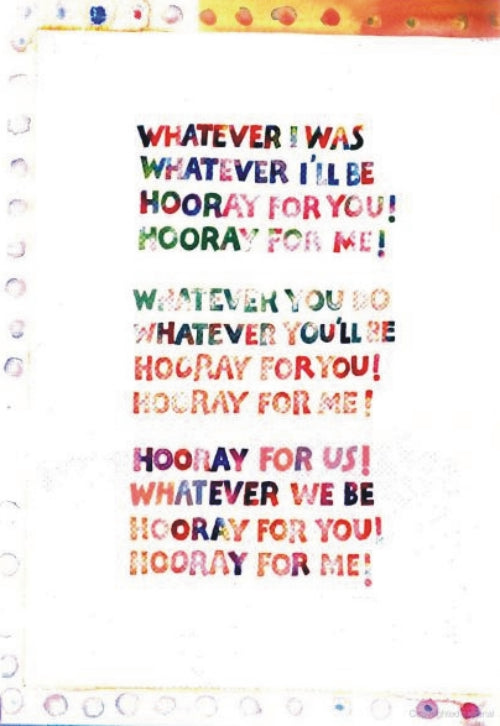 WHATEVER I WAS
WHATEVER I'LL BE
HOORAY FOR YOU!
HOORAY FOR ME!
WHATEVER YOU DO
WHATEVER YOU'LL BE
HOORAY FOR YOU!
HOORAY FOR ME!
HOORAY FOR US!
WHATEVER WE BE
HOORAY FOR YOU!
HOORAY FOR ME!
Copyrighted material